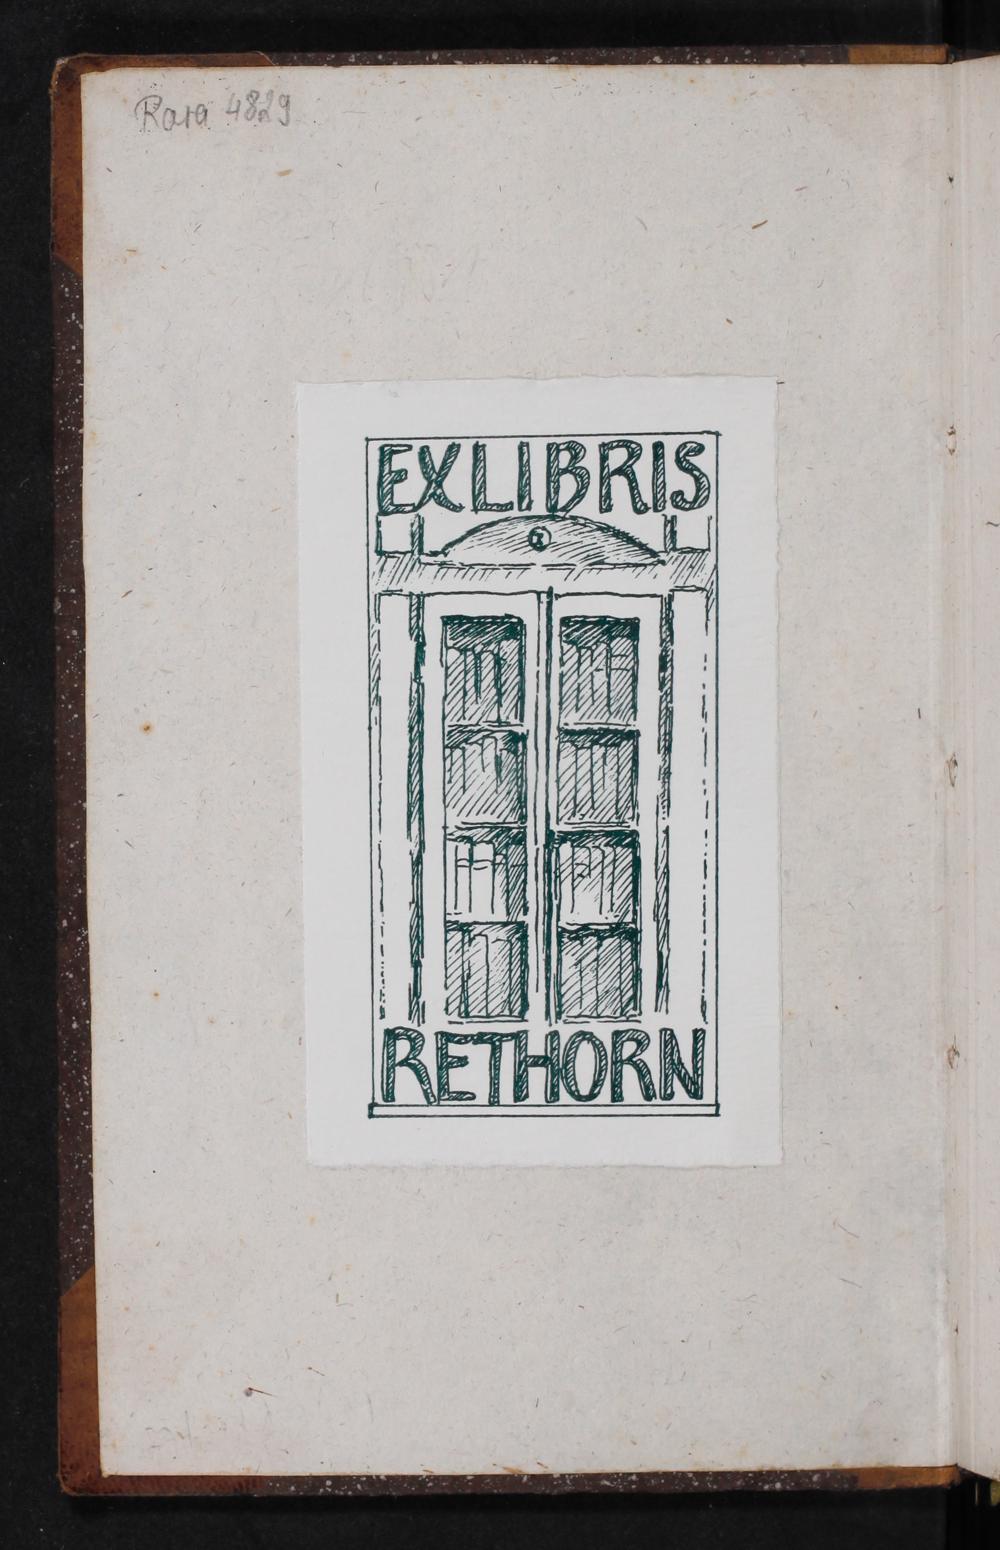 Rara 4829
EXLIBRIS
RETHORN